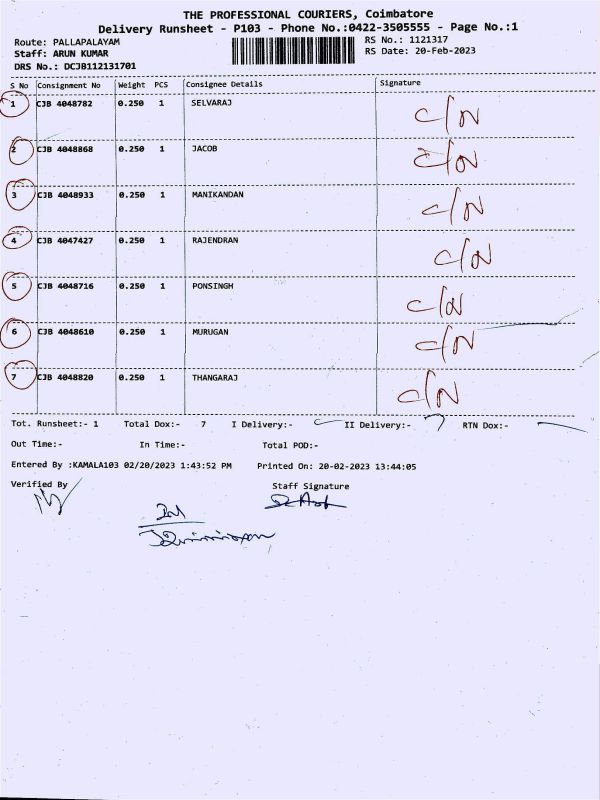 THE PROFESSIONAL COURIERS, Coimbatore
Delivery Runsheet - P103 - Phone No.:0422-3505555 - Page No.:1
Route: PALLAPALAYAM RS No.: 1121317
Staff: ARUN KUMAR RS Date: 20-Feb-2023
DRS No.: DCJB112131701
S No Consignment No Weight PCS Consignee Details Signature
1 CJB 4048782 0.250 1 SELVARAJ C/N
2 CJB 4048868 0.250 1 JACOB C/N
3 CJB 4048933 0.250 1 MANIKANDAN C/N
4 CJB 4047427 0.250 1 RAJENDRAN C/N
5 CJB 4048716 0.250 1 PONSINGH C/N
6 CJB 4048610 0.250 1 MURUGAN C/N
7 CJB 4048820 0.250 1 THANGARAJ C/N
Tot. Runsheet:- 1 Total Dox:- 7 I Delivery:- II Delivery:- 7 RTN Dox:-
Out Time:- In Time:- Total POD:-
Entered By :KAMALA103 02/20/2023 1:43:52 PM Printed On: 20-02-2023 13:44:05
Verified By Staff Signature